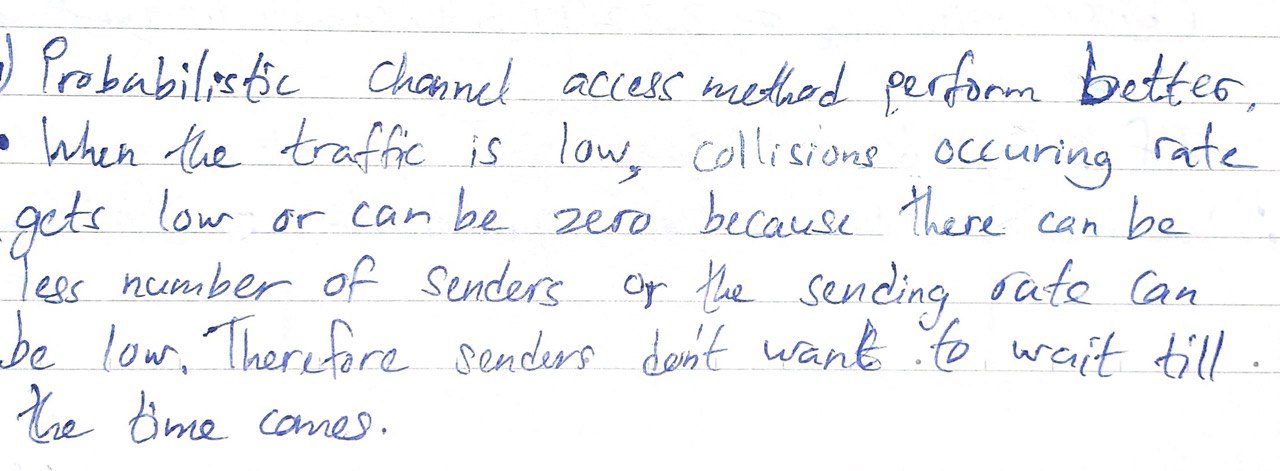 ) Probabilistic channel access method perform better.
• When the traffic is low, collisions occuring rate
gets low or can be zero because there can be
less number of senders or the sending rate can
be low. Therefore senders don't want to wait till
the time comes.